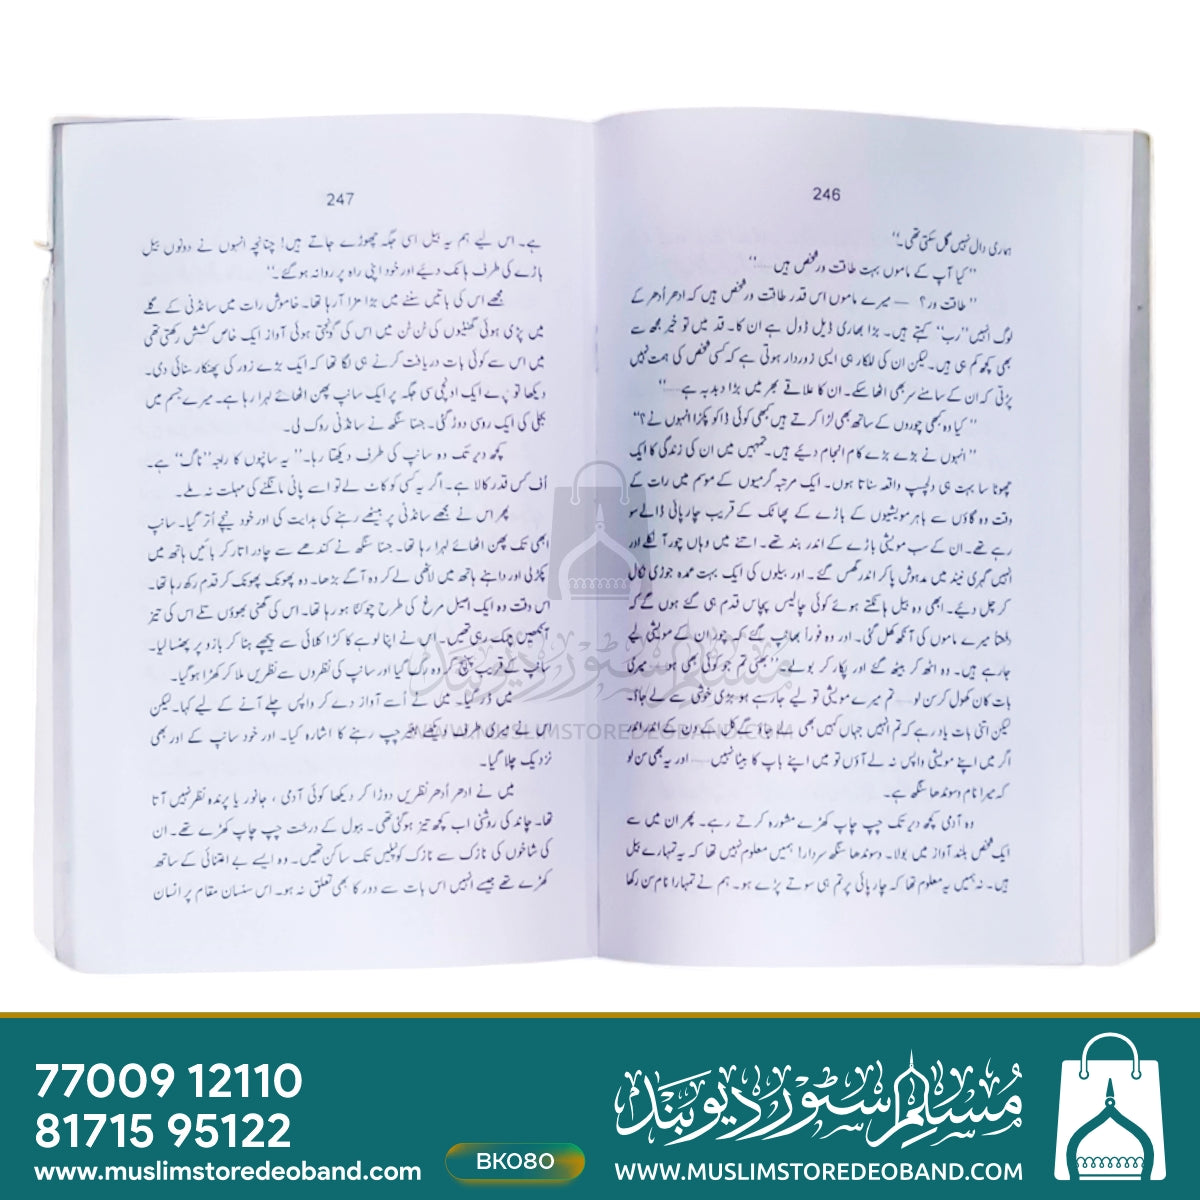 246
ہماری دال نہیں گل سکتی تھی۔"
"کیا آپ کے ماموں بہت طاقت ور شخص ہیں......"
"طاقت ور؟ — میرے ماموں اس قدر طاقت ور شخص ہیں کہ ادھر اُدھر کے
لوگ انہیں "رب" کہتے ہیں۔ بڑا بھاری ڈیل ڈول ہے ان کا۔ قد میں تو خیر مجھ سے
بھی کچھ کم ہی ہیں۔ لیکن ان کی للکار ہی ایسی زوردار ہوتی ہے کہ کسی شخص کی ہمت نہیں
پڑتی کہ ان کے سامنے سر بھی اٹھا سکے۔ ان کا علاقے بھر میں بڑا دبدبہ ہے......"
"کیا وہ کبھی چوروں کے ساتھ بھی لڑا کرتے ہیں کبھی کوئی ڈاکو پکڑا انہوں نے؟"
"انہوں نے بڑے بڑے کام انجام دیئے ہیں۔ تمہیں میں ان کی زندگی کا ایک
چھوٹا سا بہت ہی دلچسپ واقعہ سناتا ہوں۔ ایک مرتبہ گرمیوں کے موسم میں رات کے
وقت وہ گاؤں سے باہر مویشیوں کے باڑے کے پھاٹک کے قریب چارپائی ڈالے سو
رہے تھے۔ ان کے سب مویشی باڑے کے اندر بند تھے۔ اتنے میں وہاں چور آ نکلے اور
انہیں گہری نیند میں مدہوش پا کر اندر گھس گئے۔ اور بیلوں کی ایک بہت عمدہ جوڑی نکال
کر چل دیئے۔ ابھی وہ بیل ہانکتے ہوئے کوئی چالیس پچاس قدم ہی گئے ہوں گے کہ
دفعتاً میرے ماموں کی آنکھ کھل گئی۔ اور وہ فوراً بھانپ گئے کہ چور ان کے مویشی لیے
جا رہے ہیں۔ وہ اٹھ کر بیٹھ گئے اور پکار کر بولے "بھئی تم جو کوئی بھی ہو۔ میری
بات کان کھول کر سن لو...... تم میرے مویشی تو لیے جا رہے ہو بڑی خوشی سے لے جاؤ۔
لیکن اتنی بات یاد رہے کہ تم انہیں جہاں کہیں بھی لے جاؤ گے کل کے دن کے اندر اندر
اگر میں اپنے مویشی واپس نہ لے آؤں تو میں اپنے باپ کا بیٹا نہیں...... اور یہ بھی سن لو
کہ میرا نام دسوندھا سنگھ ہے۔
وہ آدمی کچھ دیر تک چپ چاپ کھڑے مشورہ کرتے رہے۔ پھر ان میں سے
ایک شخص بلند آواز میں بولا۔ دسوندھا سنگھ سردار! ہمیں معلوم نہیں تھا کہ یہ تمہارے بیل
ہیں۔ نہ ہمیں یہ معلوم تھا کہ چارپائی پر تم ہی سوتے پڑے ہو۔ ہم نے تمہارا نام سن رکھا
247
ہے۔ اس لیے ہم یہ بیل اسی جگہ چھوڑے جاتے ہیں! چنانچہ انہوں نے دونوں بیل
باڑے کی طرف ہانک دیئے اور خود اپنی راہ پر روانہ ہو گئے۔"
مجھے اس کی باتیں سننے میں بڑا مزا آ رہا تھا۔ خاموش رات میں سانڈنی کے گلے
میں پڑی ہوئی گھنٹیوں کی ٹن ٹن میں اس کی گونجتی ہوئی آواز ایک خاص کشش رکھتی تھی
میں اس سے کوئی بات دریافت کرنے ہی لگا تھا کہ ایک بڑے زور کی پھنکار سنائی دی۔
دیکھا تو پرے ایک اونچی سی جگہ پر ایک سانپ پھن اٹھائے لہرا رہا ہے۔ میرے جسم میں
بجلی کی ایک رو سی دوڑ گئی۔ جسا سنگھ نے سانڈنی روک لی۔
کچھ دیر تک وہ سانپ کی طرف دیکھتا رہا۔ "یہ سانپوں کا راجہ "ناگ" ہے۔
اُف کس قدر کالا ہے۔ اگر یہ کسی کو کاٹ لے تو اسے پانی مانگنے کی مہلت نہ ملے۔
پھر اس نے مجھے سانڈنی پر بیٹھے رہنے کی ہدایت کی اور خود نیچے اُتر گیا۔ سانپ
ابھی تک پھن اٹھائے لہرا رہا تھا۔ جسا سنگھ نے کندھے سے چادر اتار کر بائیں ہاتھ میں
پکڑ لی اور داہنے ہاتھ میں لاٹھی لے کر وہ آگے بڑھا۔ وہ پھونک پھونک کر قدم رکھ رہا تھا۔
اس وقت وہ ایک اصیل مرغ کی طرح چوکنا ہو رہا تھا۔ اس کی گھنی بھوؤں تلے اس کی تیز
آنکھیں چمک رہی تھیں۔ اس نے اپنا لوہے کا کڑا کلائی سے پیچھے ہٹا کر بازو پر پھنسا لیا۔
سانپ کے قریب پہنچ کر وہ رک گیا اور سانپ کی نظروں سے نظریں ملا کر کھڑا ہو گیا۔
میں ڈر گیا۔ میں نے اُسے آواز دے کر واپس چلے آنے کے لیے کہا۔ لیکن
اس نے میری طرف دیکھے بغیر چپ رہنے کا اشارہ کیا۔ اور خود سانپ کے اور بھی
نزدیک چلا گیا۔
میں نے ادھر اُدھر نظریں دوڑا کر دیکھا کوئی آدمی، جانور یا پرندہ نظر نہیں آتا
تھا۔ چاند کی روشنی اب کچھ تیز ہو گئی تھی۔ ببول کے درخت چپ چاپ کھڑے تھے۔ ان
کی شاخوں کی نازک سے نازک کونپلیں تک ساکن تھیں۔ وہ ایسے بے اعتنائی کے ساتھ
کھڑے تھے جیسے انہیں اس بات سے دور کا بھی تعلق نہ ہو۔ اس سنسان مقام پر انسان
مسلم سٹور دیوبند
WWW.MUSLIMSTOREDEOBAND.COM
77009 12110
81715 95122
www.muslimstoredeoband.com
BK080
مسلم سٹور دیوبند
WWW.MUSLIMSTOREDEOBAND.COM